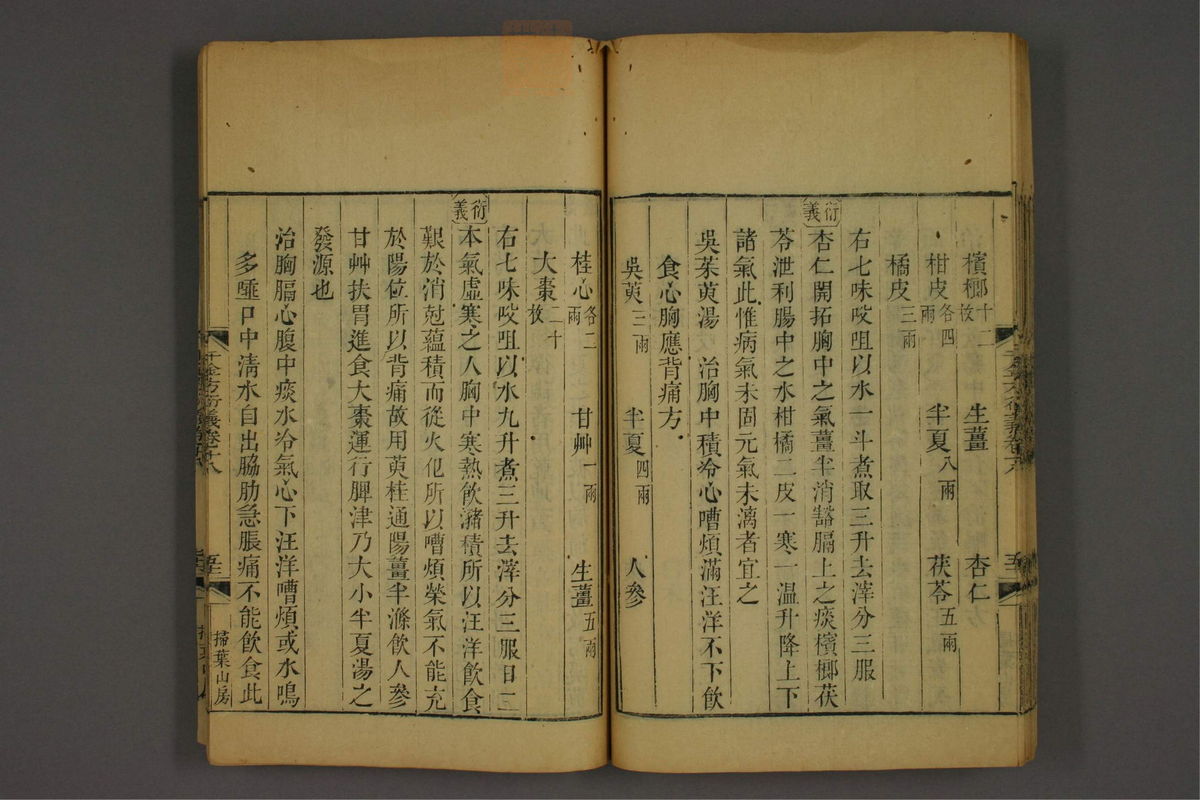 檳榔十二枚 生薑 杏仁
柑皮各四兩 半夏八兩 茯苓五兩
橘皮三兩
右七味㕮咀以水一斗煮取三升去滓分三服
衍義
杏仁開拓胸中之氣薑半消豁膈上之痰檳榔茯
苓泄利腸中之水柑橘二皮一寒一温升降上下
諸氣此惟病氣未固元氣未漓者宜之
吳茱萸湯 治胸中積冷心嘈煩滿汪洋不下飲
食心胸應背痛方
吳萸三兩 半夏四兩 人參
桂心各二兩 甘艸一兩 生薑五兩
大棗二十枚
右七味㕮咀以水九升煮三升去滓分三服日二
衍義
本氣虛寒之人胸中寒熱飲瀦積所以汪洋飲食
艱於消尅蘊積而從火化所以嘈煩榮氣不能充
於陽位所以背痛故用萸桂通陽薑半滌飲人參
甘艸扶胃進食大棗運行脾津乃大小半夏湯之
發源也
治胸膈心腹中痰水冷氣心下汪洋嘈煩或水鳴
多唾口中淸水自出脇肋急脹痛不能飲食此
千金方衍義卷十八
掃葉山房